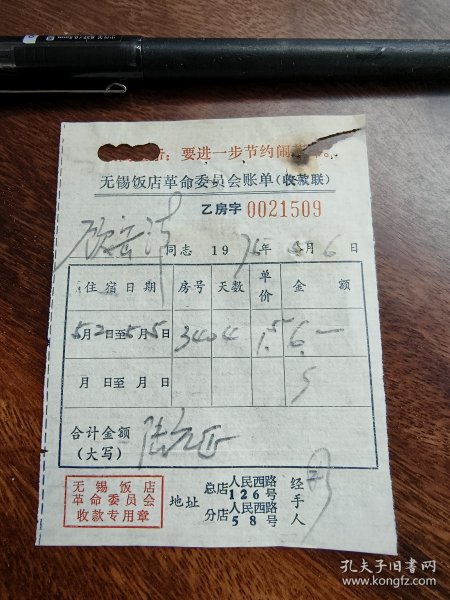 要进一步节约闹革命。
无锡饭店革命委员会账单(收款联)
乙房字 0021509
同志 1976年 5月6日
住宿日期 房号 天数 单价 金额
5月2日至5月5日 340 4 1.5 6.—
月 日至 月 日
合计金额 陆元正
(大写)
无锡饭店
革命委员会
收款专用章
地址 总店人民西路126号
分店人民西路58号
经手人
孔夫子旧书网
www.kongfz.com